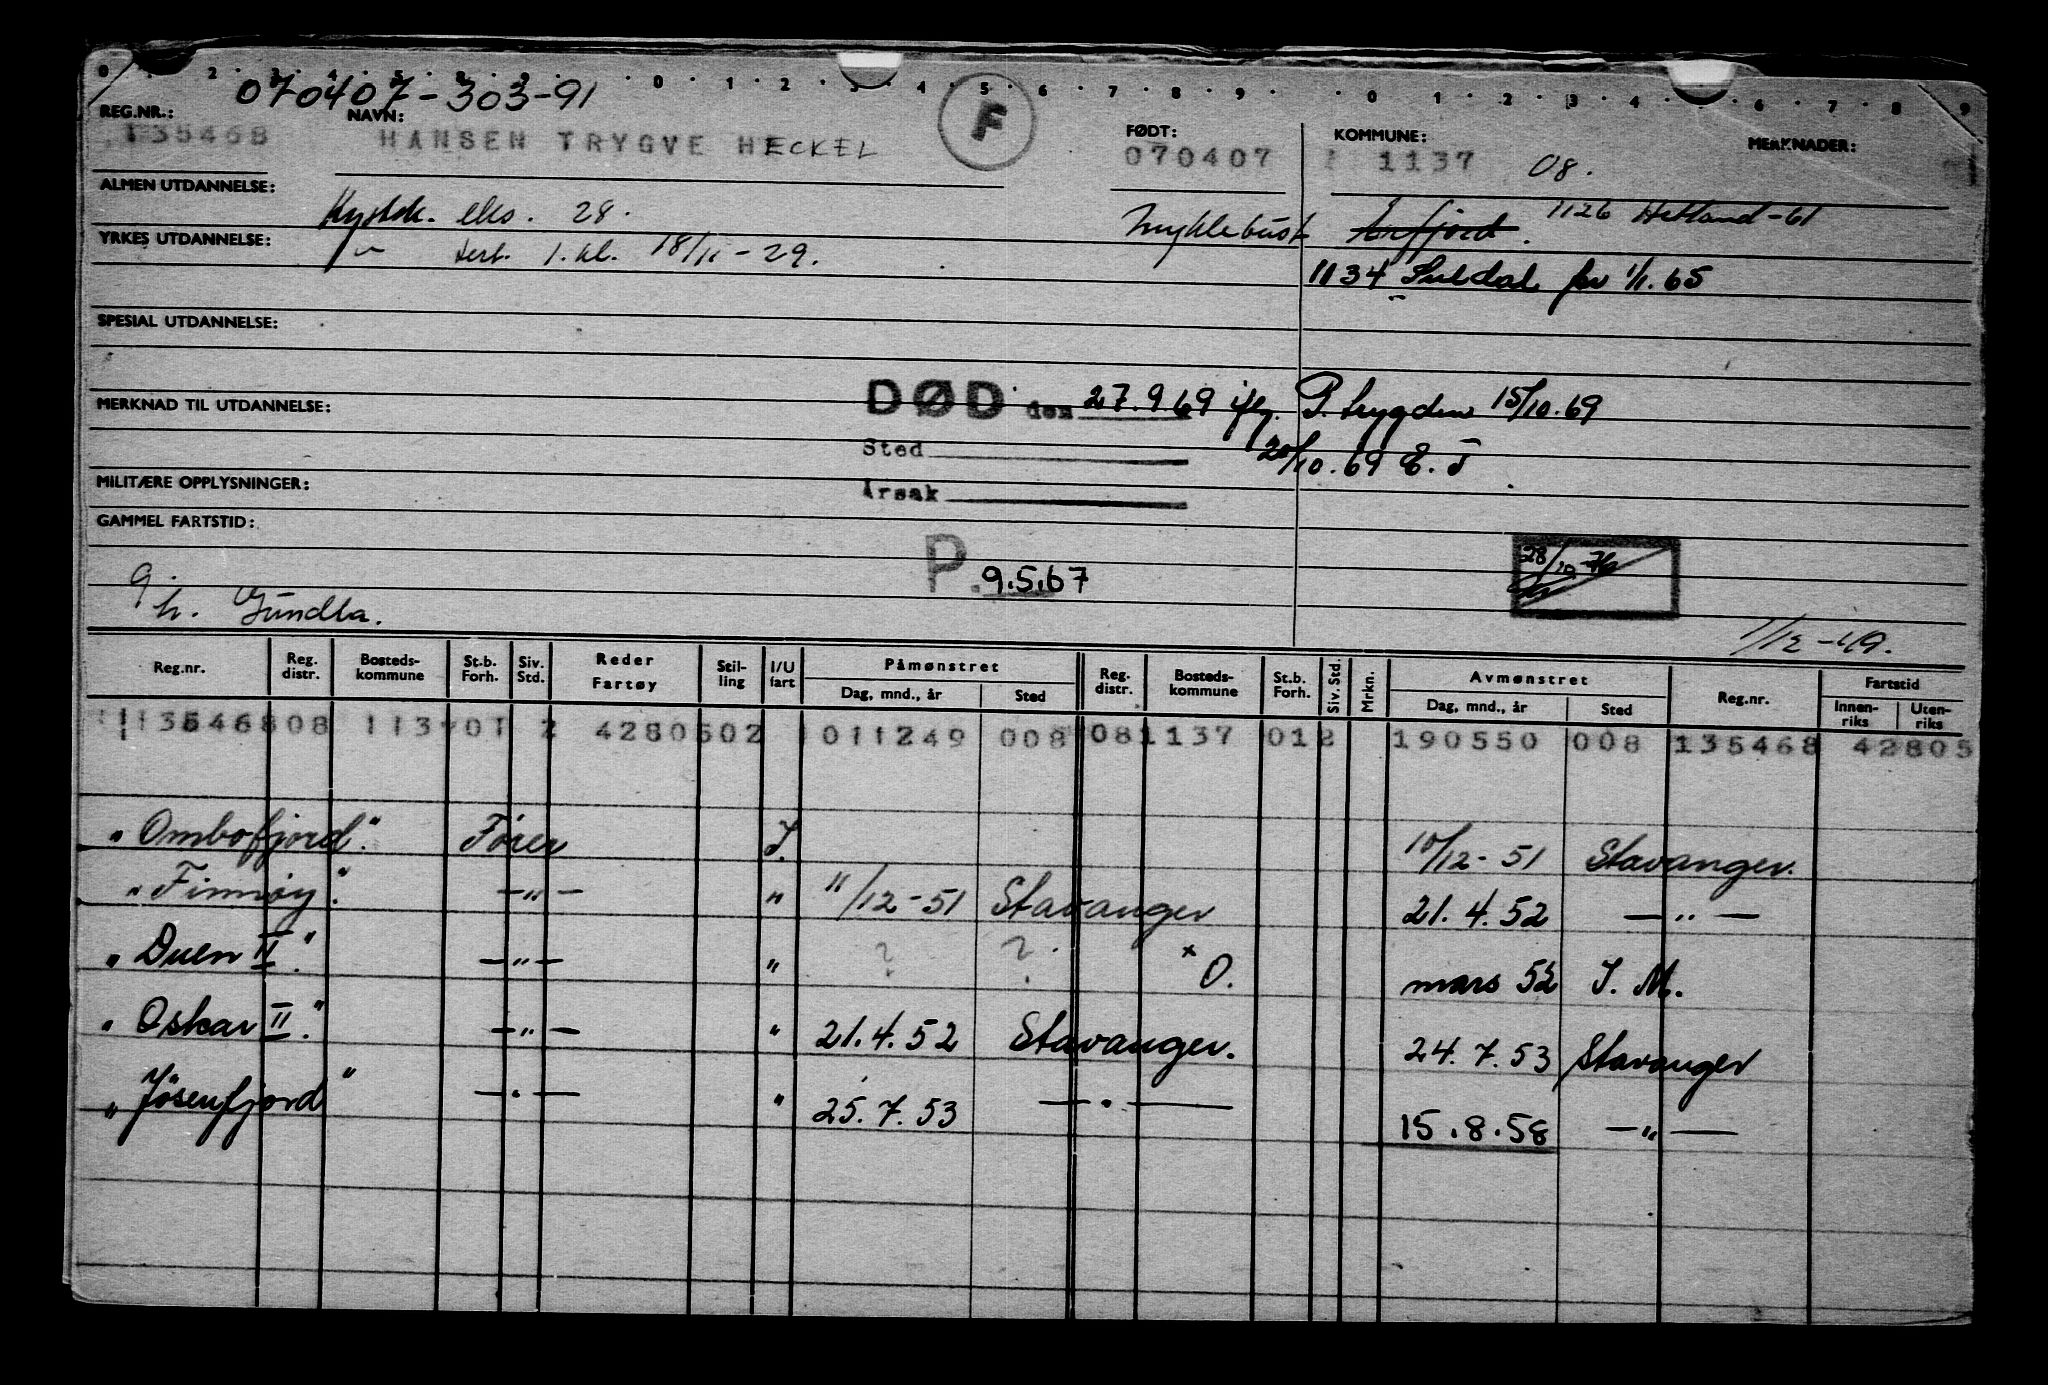 070407-303-91
F
REG.NR.: NAVN: FØDT: KOMMUNE: MERKNADER:
135468 HANSEN TRYGVE HECKEL 070407 1137 08.
ALMEN UTDANNELSE: Kystsk. eks. 28. 1126 Hetland-61
YRKES UTDANNELSE: sert. 1. kl. 18/11-29.
1134 Suldal fra 1/1.65
SPESIAL UTDANNELSE:
DØD den 27.9.69 ifg. P. trygden 15/10.69
MERKNAD TIL UTDANNELSE:
Sted 20/10.69 E.T
MILITÆRE OPPLYSNINGER: Årsak
GAMMEL FARTSTID:
P. 9.5.67
1/12-49.
Reg.nr. Reg. distr. Bosteds-kommune St.b. Forh. Siv. Std. Reder Fartøy Stil-ling I/U fart Påmønstret Reg. distr. Bosteds-kommune St.b. Forh. Siv. Std. Mrkn. Avmønstret Reg.nr. Fartstid
Dag, mnd., år Sted Dag, mnd., år Sted Innen-riks Uten-riks
4280502 011249 008 081137 012 190550 008 135468 42805
"Ombofjord". Fører I. 10/12-51 Stavanger.
"Finnøy". -"- " 11/12-51 Stavanger 21.4.52 -"-
"Duen II". -"- " ? ? x O. mars 52 I. M.
"Oskar II". -"- " 21.4.52 Stavanger. 24.7.53 Stavanger
"Jøsenfjord" -"- " 25.7.53 -"- 15.8.58 -"-